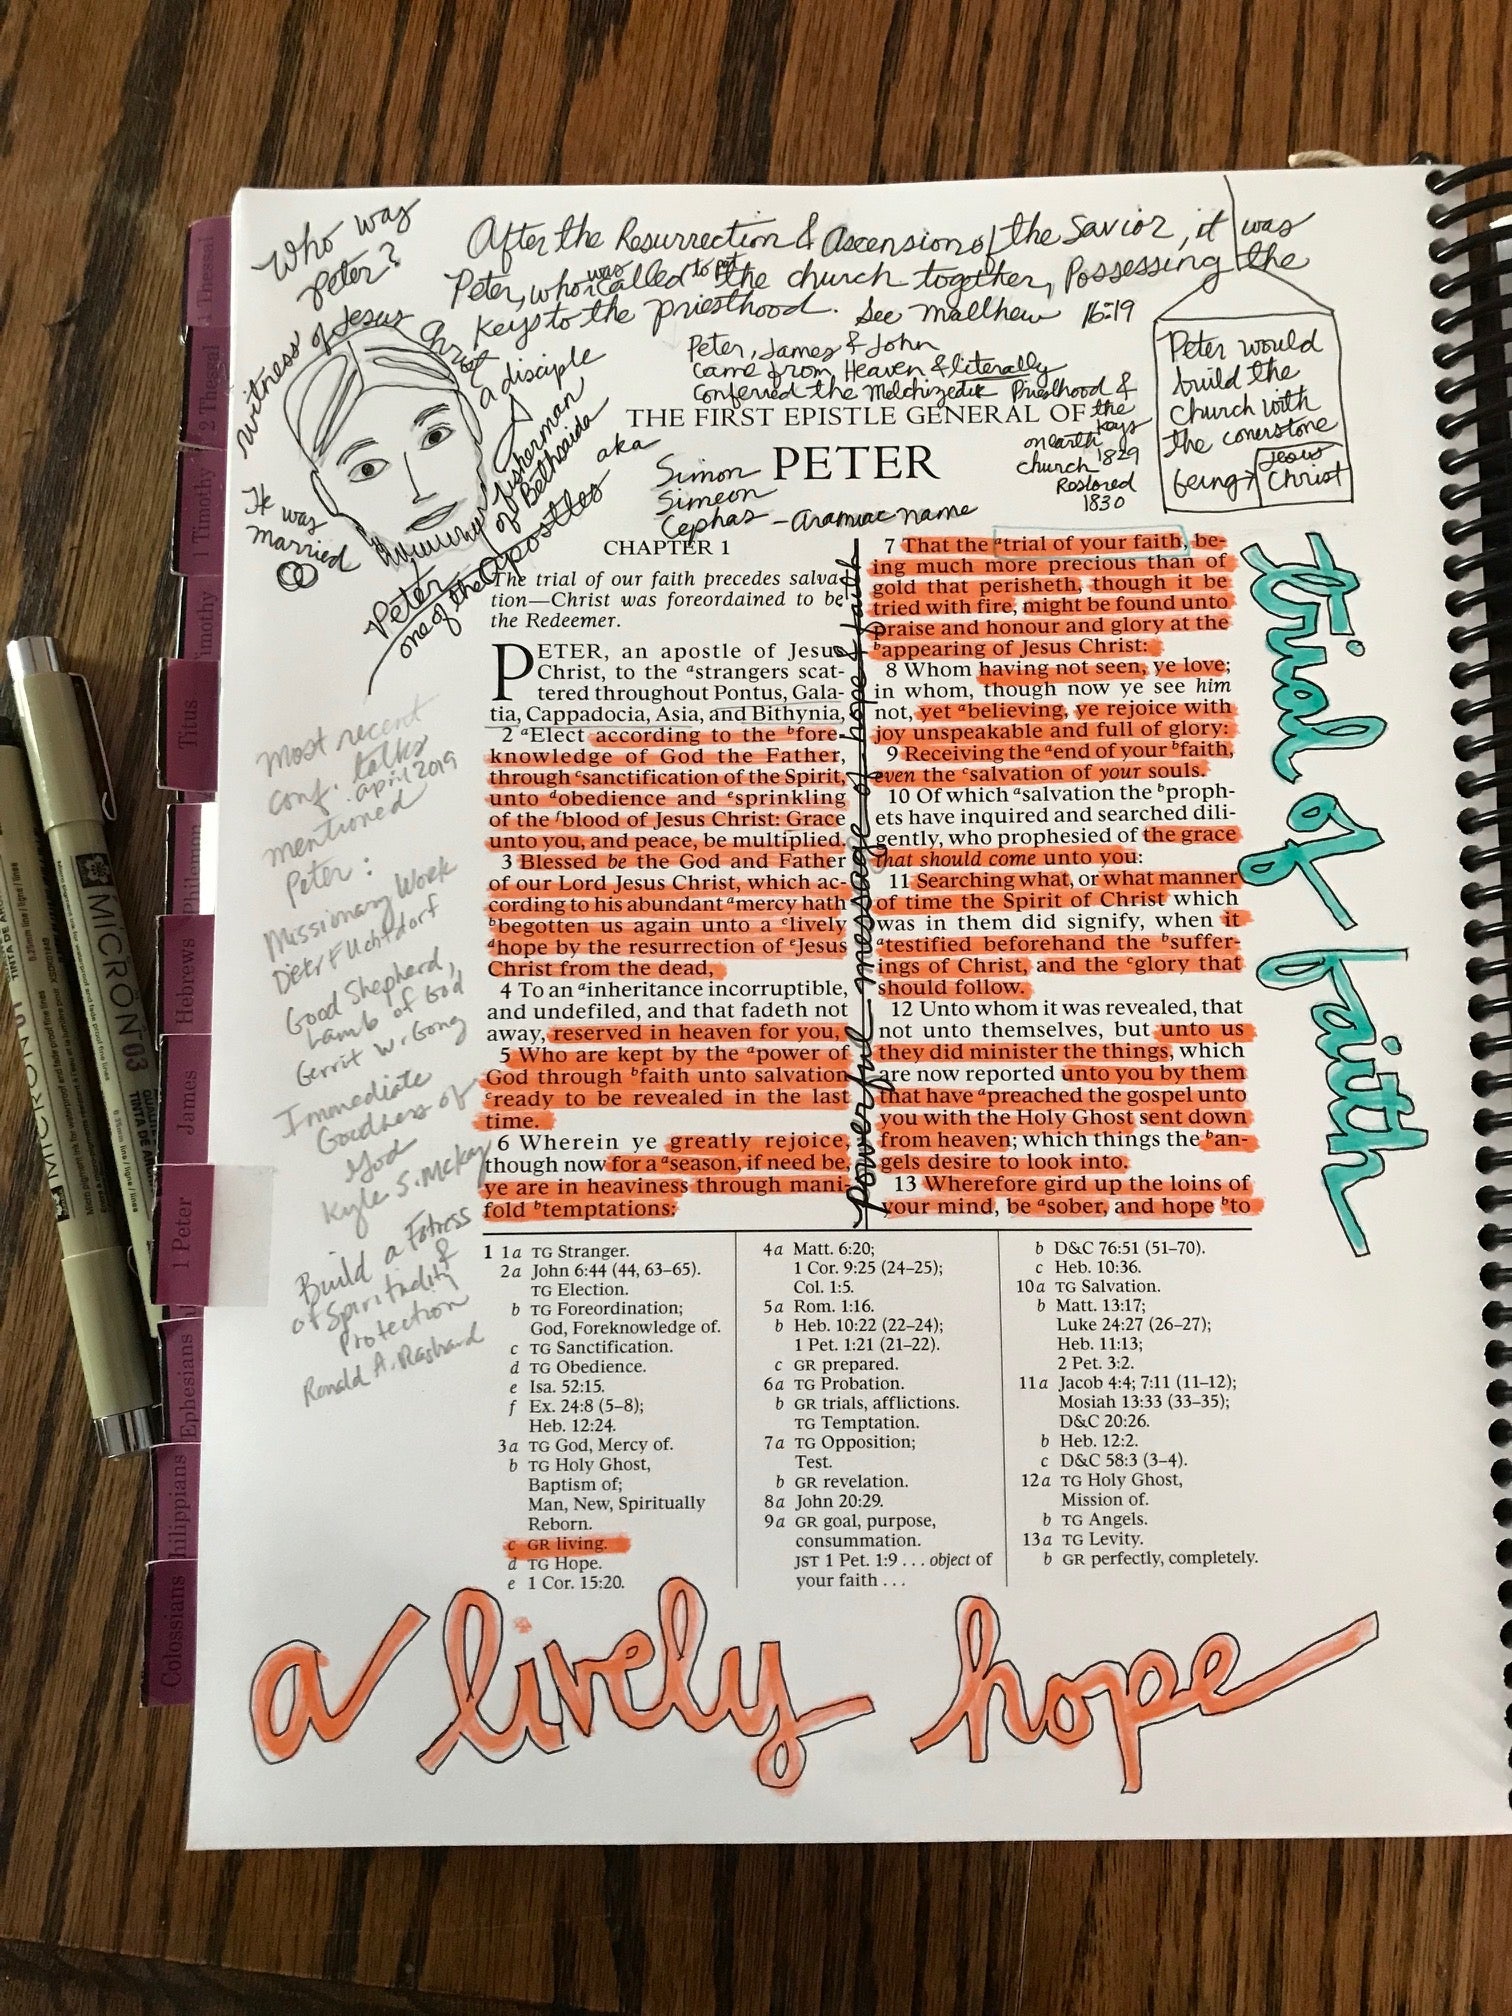 Who was
Peter?
witness of Jesus Christ
a disciple
fisherman
of Bethsaida
It was
married
Peter
one of the apostles
aka
Simon
Simeon
Cephas - aramiac name
After the Resurrection & Ascension of the Savior, it was
Peter, who was called to put the church together, Possessing the
keys to the priesthood. See Matthew 16:19
Peter, James & John
came from Heaven & literally
Conferred the Melchizedek Priesthood &
the
keys
on earth 1829
church
Restored
1830
Peter would
build the
church with
the conerstone
being→ Jesus
Christ
THE FIRST EPISTLE GENERAL OF
PETER
CHAPTER 1
The trial of our faith precedes salva-
tion—Christ was foreordained to be
the Redeemer.
PETER, an apostle of Jesus
Christ, to the ᵃstrangers scat-
tered throughout Pontus, Gala-
tia, Cappadocia, Asia, and Bithynia,
2 ᵃElect according to the ᵇfore-
knowledge of God the Father,
through ᶜsanctification of the Spirit,
unto ᵈobedience and ᵉsprinkling
of the ᶠblood of Jesus Christ: Grace
unto you, and peace, be multiplied.
3 Blessed be the God and Father
of our Lord Jesus Christ, which ac-
cording to his abundant ᵃmercy hath
ᵇbegotten us again unto a ᶜlively
ᵈhope by the resurrection of ᵉJesus
Christ from the dead,
4 To an ᵃinheritance incorruptible,
and undefiled, and that fadeth not
away, reserved in heaven for you,
5 Who are kept by the ᵃpower of
God through ᵇfaith unto salvation
ᶜready to be revealed in the last
time.
6 Wherein ye greatly rejoice,
though now for a ᵃseason, if need be,
ye are in heaviness through mani-
fold ᵇtemptations:
powerful message of hope & faith
7 That the ᵃtrial of your faith, be-
ing much more precious than of
gold that perisheth, though it be
tried with fire, might be found unto
praise and honour and glory at the
ᵇappearing of Jesus Christ:
8 Whom having not seen, ye love;
in whom, though now ye see him
not, yet ᵃbelieving, ye rejoice with
joy unspeakable and full of glory:
9 Receiving the ᵃend of your ᵇfaith,
even the ᶜsalvation of your souls.
10 Of which ᵃsalvation the ᵇproph-
ets have inquired and searched dili-
gently, who prophesied of the grace
that should come unto you:
11 Searching what, or what manner
of time the Spirit of Christ which
was in them did signify, when it
ᵃtestified beforehand the ᵇsuffer-
ings of Christ, and the ᶜglory that
should follow.
12 Unto whom it was revealed, that
not unto themselves, but unto us
they did minister the things, which
are now reported unto you by them
that have ᵃpreached the gospel unto
you with the Holy Ghost sent down
from heaven; which things the ᵇan-
gels desire to look into.
13 Wherefore gird up the loins of
your mind, be ᵃsober, and hope ᵇto
trial of faith
Most recent
conf. talks
april 2019
mentioned
Peter:
Missionary Work
Dieter F Uchtdorf
Good Shepherd,
Lamb of God
Gerrit W. Gong
Immediate
Goodness of
God
Kyle S. McKay
Build a Fotress
of Spirituality &
Protection
Ronald A. Rasband
1 1a TG Stranger.
2a John 6:44 (44, 63–65).
TG Election.
b TG Foreordination;
God, Foreknowledge of.
c TG Sanctification.
d TG Obedience.
e Isa. 52:15.
f Ex. 24:8 (5–8);
Heb. 12:24.
3a TG God, Mercy of.
b TG Holy Ghost,
Baptism of;
Man, New, Spiritually
Reborn.
c GR living.
d TG Hope.
e 1 Cor. 15:20.
4a Matt. 6:20;
1 Cor. 9:25 (24–25);
Col. 1:5.
5a Rom. 1:16.
b Heb. 10:22 (22–24);
1 Pet. 1:21 (21–22).
c GR prepared.
6a TG Probation.
b GR trials, afflictions.
TG Temptation.
7a TG Opposition;
Test.
b GR revelation.
8a John 20:29.
9a GR goal, purpose,
consummation.
JST 1 Pet. 1:9 . . . object of
your faith . . .
b D&C 76:51 (51–70).
c Heb. 10:36.
10a TG Salvation.
b Matt. 13:17;
Luke 24:27 (26–27);
Heb. 11:13;
2 Pet. 3:2.
11a Jacob 4:4; 7:11 (11–12);
Mosiah 13:33 (33–35);
D&C 20:26.
b Heb. 12:2.
c D&C 58:3 (3–4).
12a TG Holy Ghost,
Mission of.
b TG Angels.
13a TG Levity.
b GR perfectly, completely.
a lively hope
1 Thessal
2 Thessal
1 Timothy
Timothy
Titus
Philemon
Hebrews
James
1 Peter
Ephesians
hilippians
Colossians
MICRON 03
MICRON 01